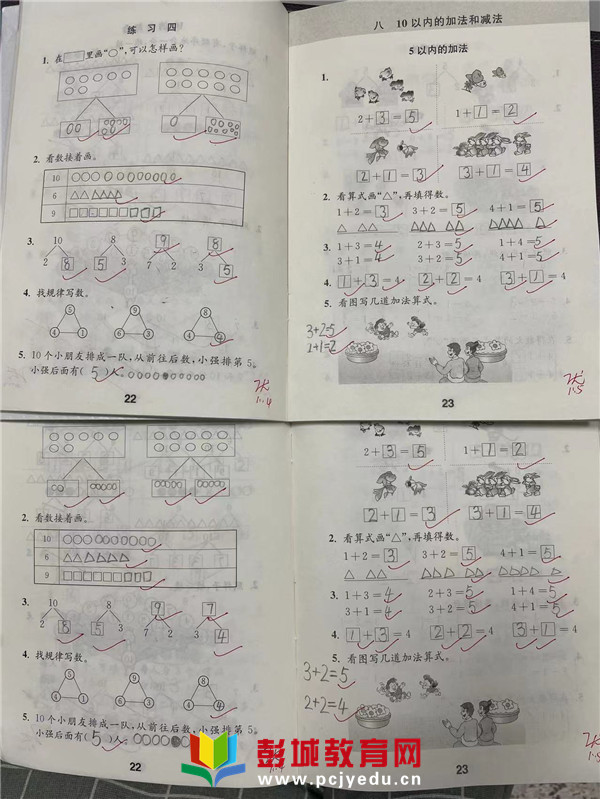 练习四
1. 在□里画“○”,可以怎样画?
2. 看数接着画。
10
6
9
3.
10 8 9 8
2 8 5 3 7 2 3 5
4. 找规律写数。
5 9 8
4 1 6 3 4 4
5. 10个小朋友排成一队,从前往后数,小强排第5,
小强后面有(5)人。
22
1.4
八 10以内的加法和减法
5以内的加法
1.
2+3=5 1+1=2
2+1=3 3+1=4
2. 看算式画“△”,再填得数。
1+2=3 3+2=5 4+1=5
3. 1+3=4 2+3=5 1+4=5
3+1=4 3+2=5 4+1=5
4. 1+3=4 2+2=4 3+1=4
5. 看图写几道加法算式。
3+2=5
2+1=2
23
1.5
2. 看数接着画。
10
6
9
3.
10 8 9 7
2 8 5 3 7 2 3 4
4. 找规律写数。
5 9 8
4 1 6 3 4 4
5. 10个小朋友排成一队,从前往后数,小强排第5,
小强后面有(5)人。
22
1.4
2+3=5 1+1=2
2+1=3 3+1=4
2. 看算式画“△”,再填得数。
1+2=3 3+2=5 4+1=5
3. 1+3=4 2+3=5 1+4=5
3+1=4 3+2=5 4+1=5
4. 1+3=4 2+2=4 3+1=4
5. 看图写几道加法算式。
3+2=5
2+2=4
23
1.5
彭城教育网
www.pcjyedu.cn